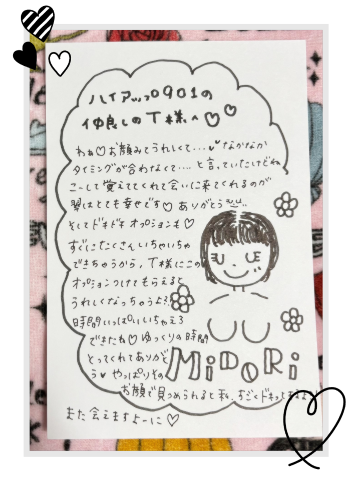 ハイアップ0901の
仲良しのT様へ♡♡
わぁ♡お顔みてうれしくて...なかなか
タイミングが合わなくて....と言っていたけどね
こーして覚えてくれて会いに来てくれるのが
翠はとても幸せです♡ありがとう
そしてドキドキオプションも♡
すぐにたくさんいちゃいちゃ
できちゃうから、T様にこの
オプションつけてもらえると
うれしくなっちゃうよ
時間いっぱいいちゃ
できたね♡ゆっくりの時間
とってくれてありがと
う♥やっぱりその
お顔で見つめられると私、すごくドキッ
MiDORi
また会えますよーに♡